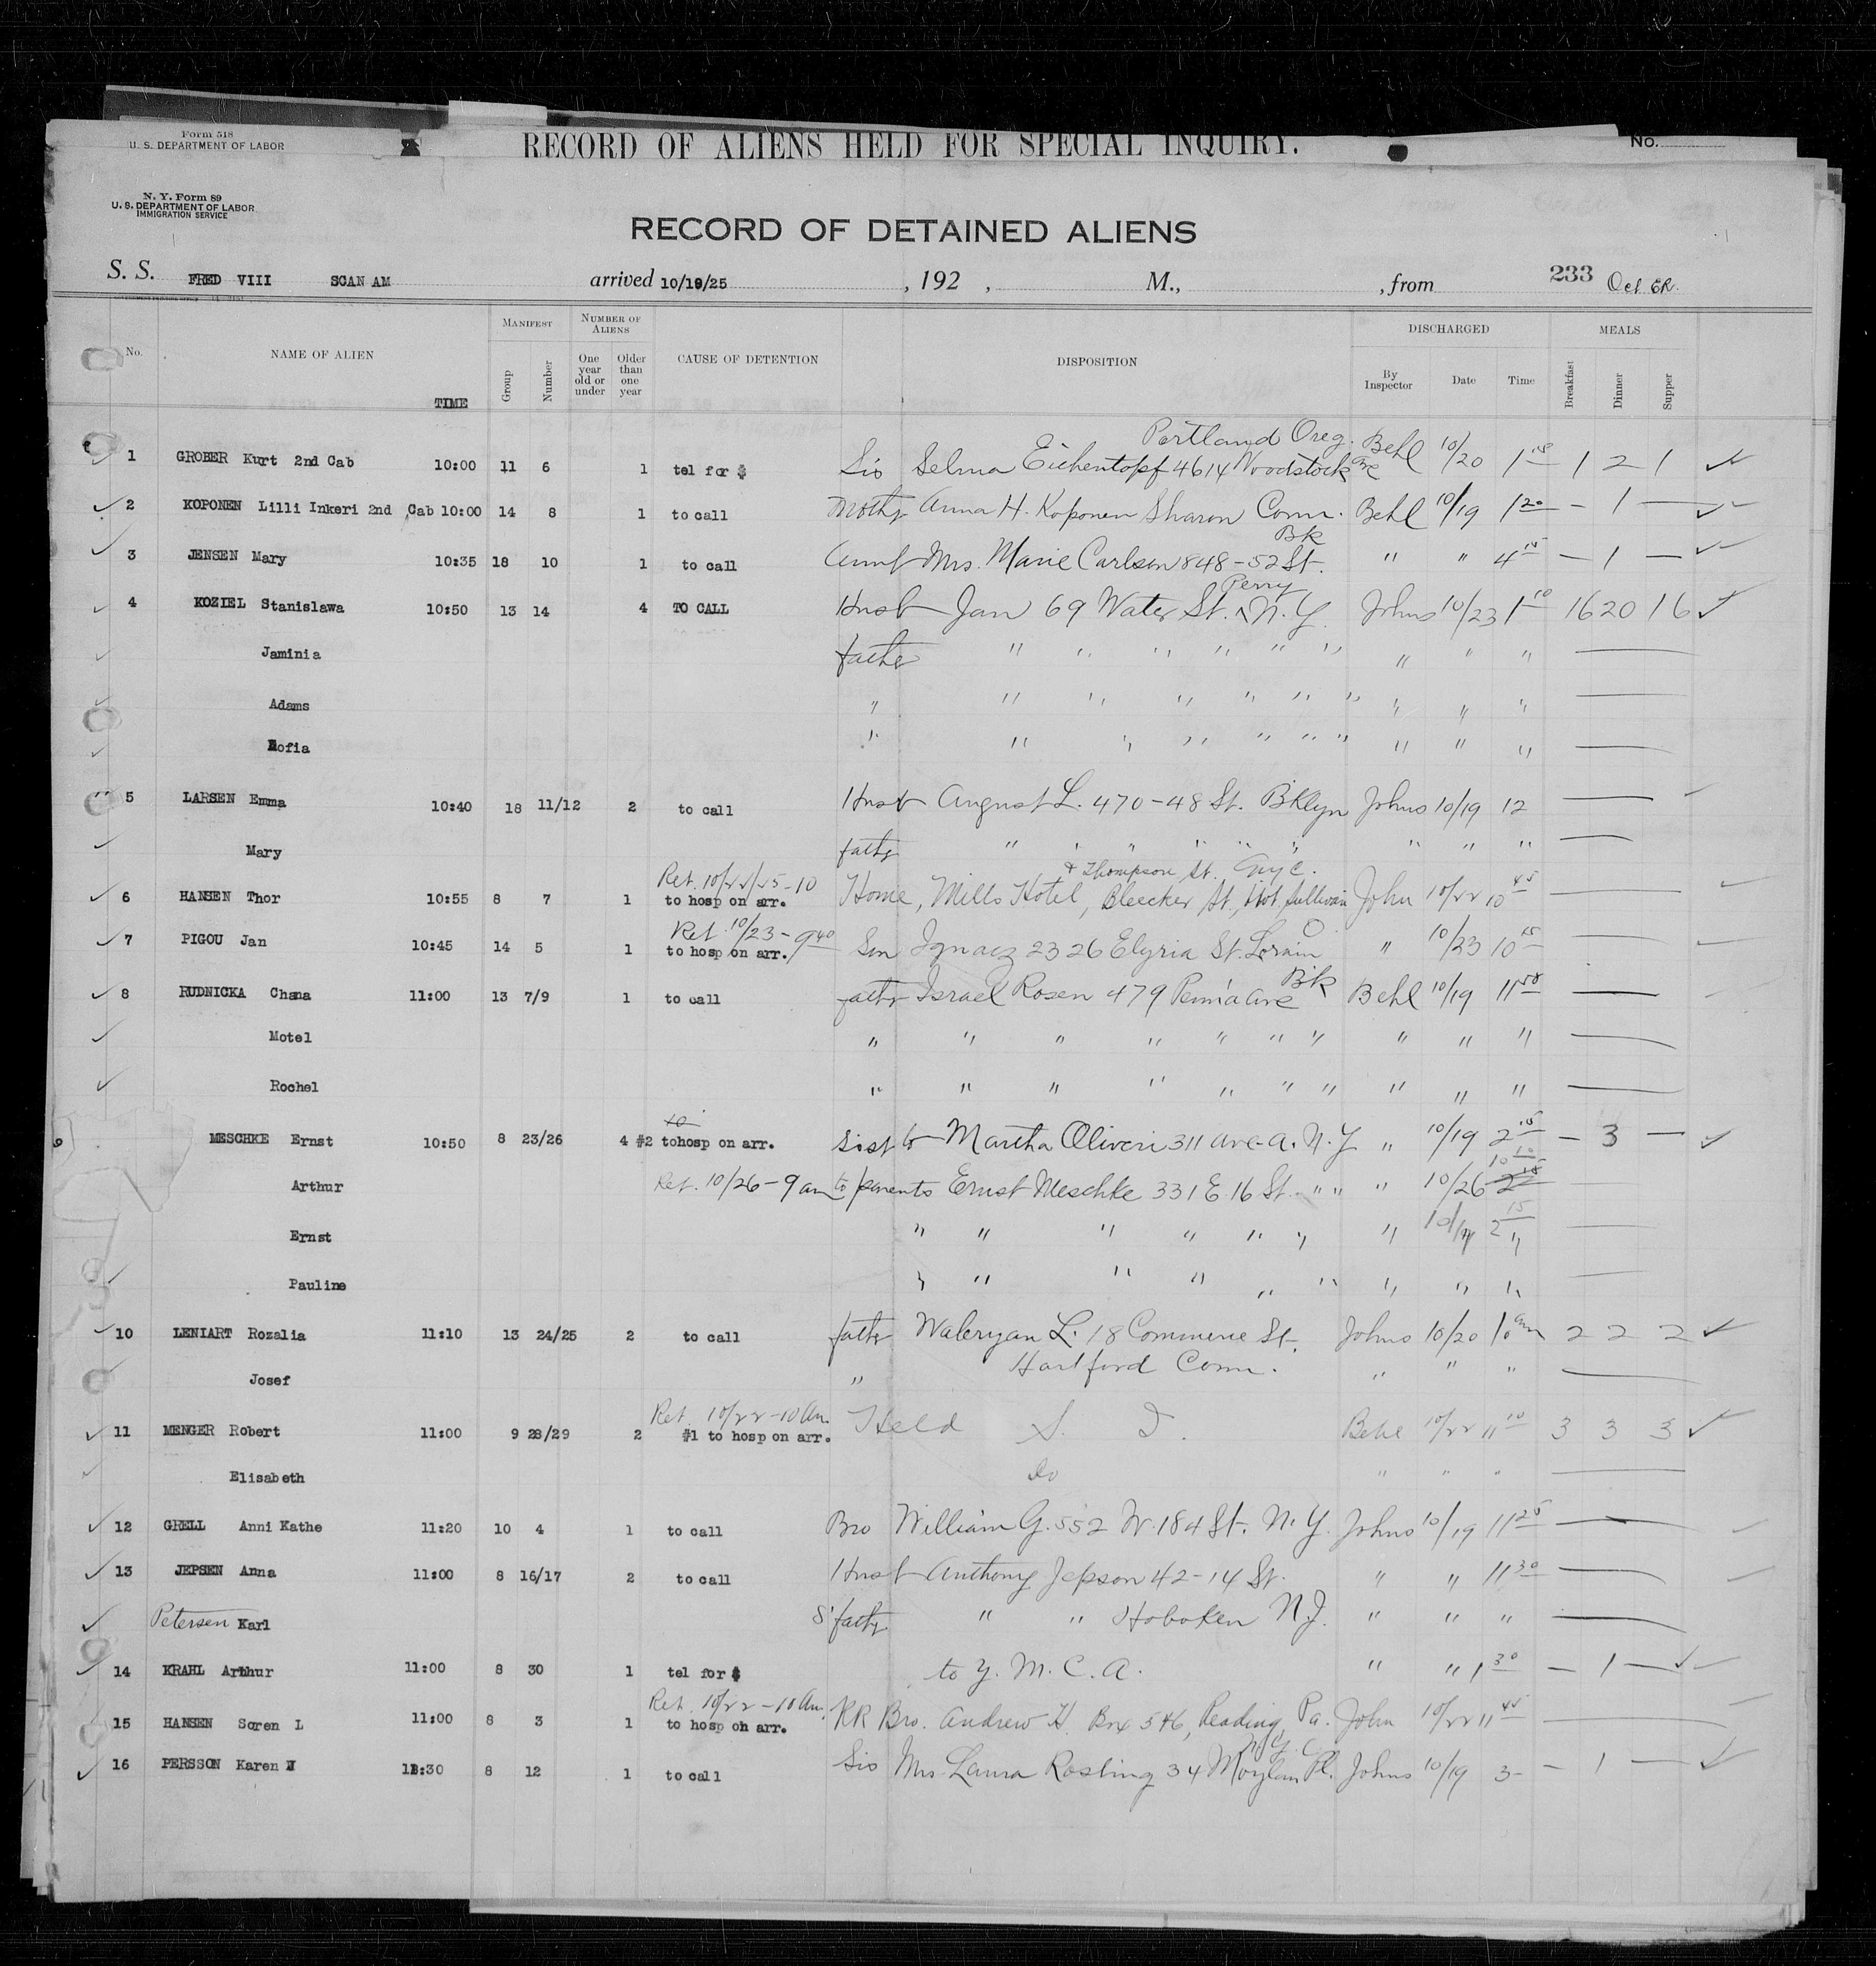 Form 518
U. S. DEPARTMENT OF LABOR
RECORD OF ALIENS HELD FOR SPECIAL INQUIRY.
No.
N. Y. Form 89
U. S. DEPARTMENT OF LABOR
IMMIGRATION SERVICE
RECORD OF DETAINED ALIENS
S. S. FRED VIII SCAN AM arrived 10/19/25 , 192 , M., , from 233 Oct. ER.
No. NAME OF ALIEN TIME MANIFEST Group Number NUMBER OF ALIENS One year old or under Older than one year CAUSE OF DETENTION DISPOSITION DISCHARGED By Inspector Date Time MEALS Breakfast Dinner Supper
Portland Oreg.
1 GROBER Kurt 2nd Cab 10:00 11 6 1 tel for $ Sis Selma Eichentopf 4614 Woodstock Ave Behl 10/20 1 15 1 2 1
2 KOPONEN Lilli Inkeri 2nd Cab 10:00 14 8 1 to call Mothr Anna H. Koponen Sharon Conn. Behl 10/19 1 20 — 1 —
Bk
3 JENSEN Mary 10:35 18 10 1 to call Aunt Mrs. Marie Carlson 848-52 St. " " 4 15 — 1 —
Perry
4 KOZIEL Stanislawa 10:50 13 14 4 TO CALL Husb Jan 69 Water St. N.Y. Johns 10/23 1 10 16 20 16
Jaminia father " " " " " " " " "
Adams " " " " " " " " " " "
Zofia " " " " " " " " " "
5 LARSEN Emma 10:40 18 11/12 2 to call Husb August L. 470-48 St. Bklyn Johns 10/19 12
Mary fathr " " " " " " " " "
Ret. 10/22/25-10 & Thompson St., N.Y.C.
6 HANSEN Thor 10:55 8 7 1 to hosp on arr. Home, Mills Hotel, Bleecker St., bet. Sullivan John 10/22 10 45
Ret 10/23-9 40 O
7 PIGOU Jan 10:45 14 5 1 to hosp on arr. Son Ignacz 2326 Elyria St. Lorain " 10/23 10 15
Bk
8 RUDNICKA Chana 11:00 13 7/9 1 to call fathr Israel Rosen 479 Penn'a Ave Behl 10/19 11 50
Motel " " " " " " " " " "
Rochel " " " " " " " " " "
9 MESCHKE Ernst 10:50 8 23/26 4 #2 to hosp on arr. Sist to Martha Oliveri 311 Ave A. N.Y " 10/19 2 15 — 3 —
Arthur Ret. 10/26-9 am to parents Ernst Meschke 331 E. 16 St. " " " 10/26 10 10
Ernst " " " " " " " 10/19 2 15
Pauline " " " " " " " " "
10 LENIART Rozalia 11:10 13 24/25 2 to call fathr Waleryan L. 18 Commerce St. Johns 10/20 10 am 2 2 2
Josef " Hartford Conn. " " "
Ret. 10/22-10 Am.
11 MENGER Robert 11:00 9 28/29 2 #1 to hosp on arr. Held S. I. Behl 10/22 11 10 3 3 3
Elisabeth do " " "
12 GRELL Anni Kathe 11:20 10 4 1 to call Bro William G. 552 W. 184 St. N.Y. Johns 10/19 11 25
13 JEPSEN Anna 11:00 8 16/17 2 to call Husb Anthony Jepson 42-14 St. " " 11 30
Petersen Karl S'fathr " " Hoboken N.J. " " "
14 KRAHL Arthur 11:00 8 30 1 tel for $ to Y. M. C. A. " " 1 30 — 1 —
Ret. 10/22-10 Am.
15 HANSEN Soren L 11:00 8 3 1 to hosp on arr. RR Bro. Andrew H. Box 546, Reading, Pa. John 10/22 11 45
N.Y.C.
16 PERSSON Karen 11:30 8 12 1 to call Sis Mrs. Laura Rosling 34 Moylan Pl. Johns 10/19 3- — 1 —